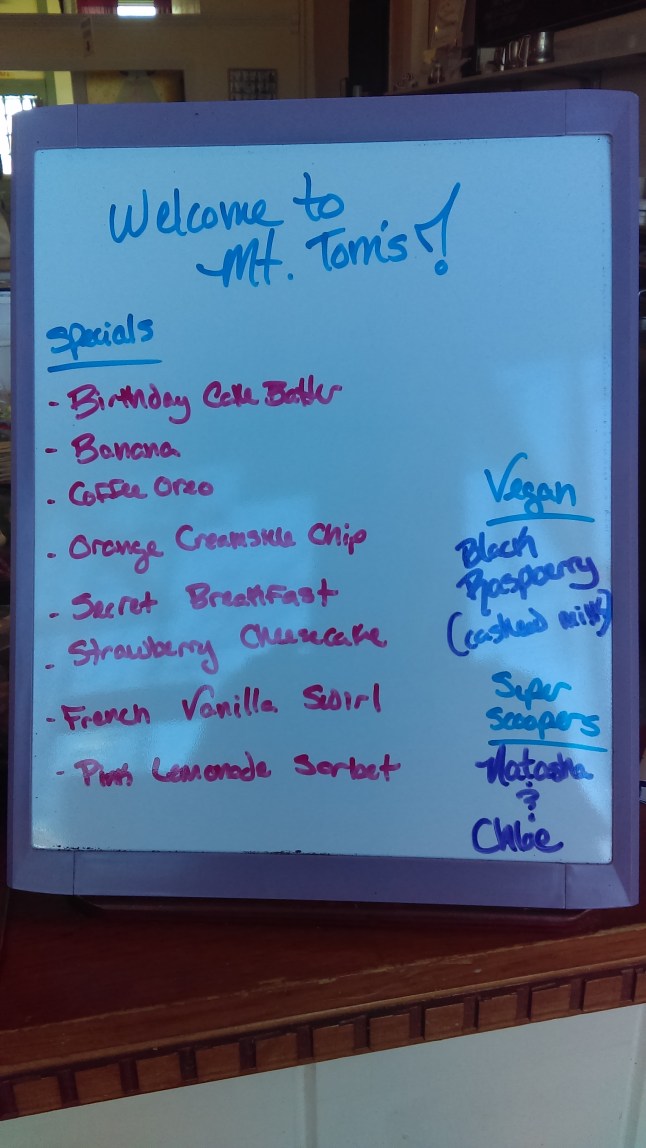 Welcome to
Mt. Tom's!
Specials
- Birthday Cake Batter
- Banana
- Coffee Oreo
- Orange Creamsicle Chip
- Secret Breakfast
- Strawberry Cheesecake
- French Vanilla Swirl
- Pink Lemonade Sorbet
Vegan
Black
Raspberry
(cashew milk)
Super
Scoopers
Natasha
&
Chloe